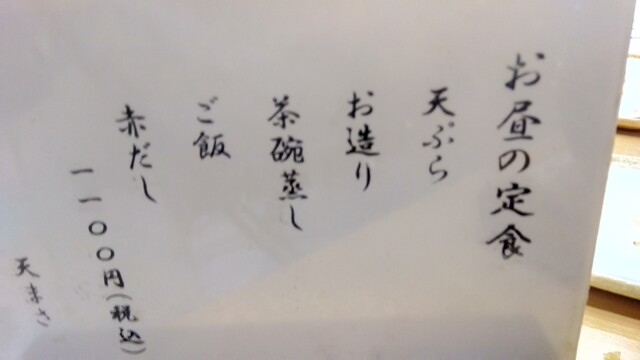 お昼の定食
天ぷら
お造り
茶碗蒸し
ご飯
赤だし
一一〇〇円(税込)
天まさ